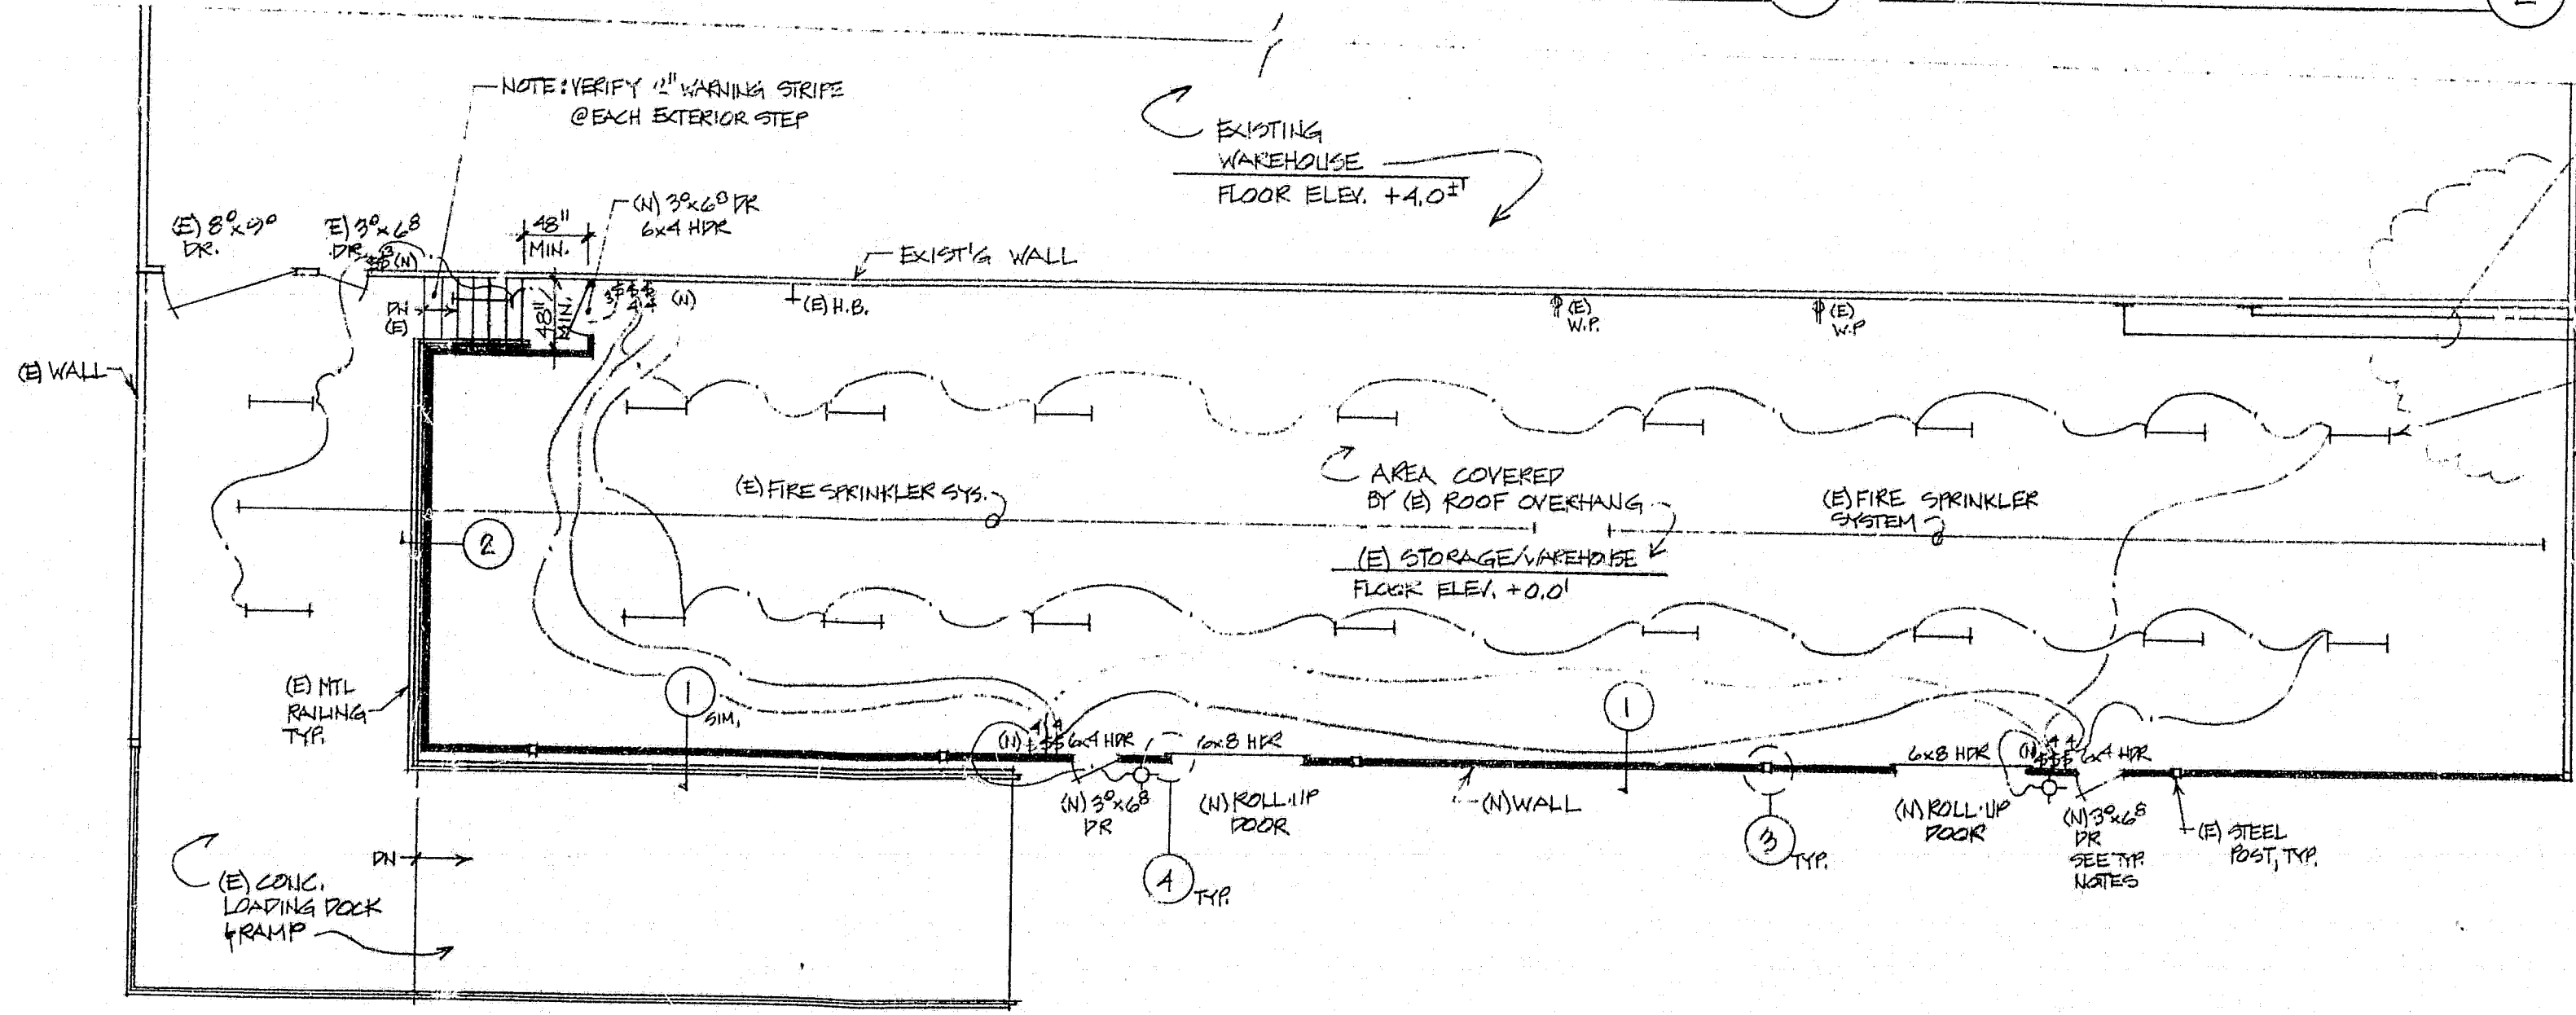 NOTE: VERIFY 2" WARNING STRIPE
@ EACH EXTERIOR STEP
EXISTING
WAREHOUSE
FLOOR ELEV. +4.0±'
(E) 8⁰x9⁰
DR.
E) 3⁰x6⁸
DR.
(N)
48"
MIN.
(N) 3⁰x6⁸ DR
6x4 HDR
EXIST'G WALL
DN
(E)
48"
MIN.
3
4 4
(N)
(E) H.B.
(E)
W.P.
(E)
W.P
(E) WALL
(E) FIRE SPRINKLER SYS.
AREA COVERED
BY (E) ROOF OVERHANG
(E) FIRE SPRINKLER
SYSTEM
2
(E) STORAGE/WAREHOUSE
FLOOR ELEV. +0.0'
(E) MTL
RAILING
TYP.
1
SIM.
1
(N)
4 4
6x4 HDR
6x8 HDR
6x8 HDR
(N)
4 4
6x4 HDR
(N) 3⁰x6⁸
DR
(N) ROLL-UP
DOOR
(N) WALL
3
TYP.
(N) ROLL-UP
DOOR
(N) 3⁰x6⁸
DR
SEE TYP.
NOTES
(E) STEEL
POST, TYP.
4
TYP.
DN
(E) CONC.
LOADING DOCK
& RAMP